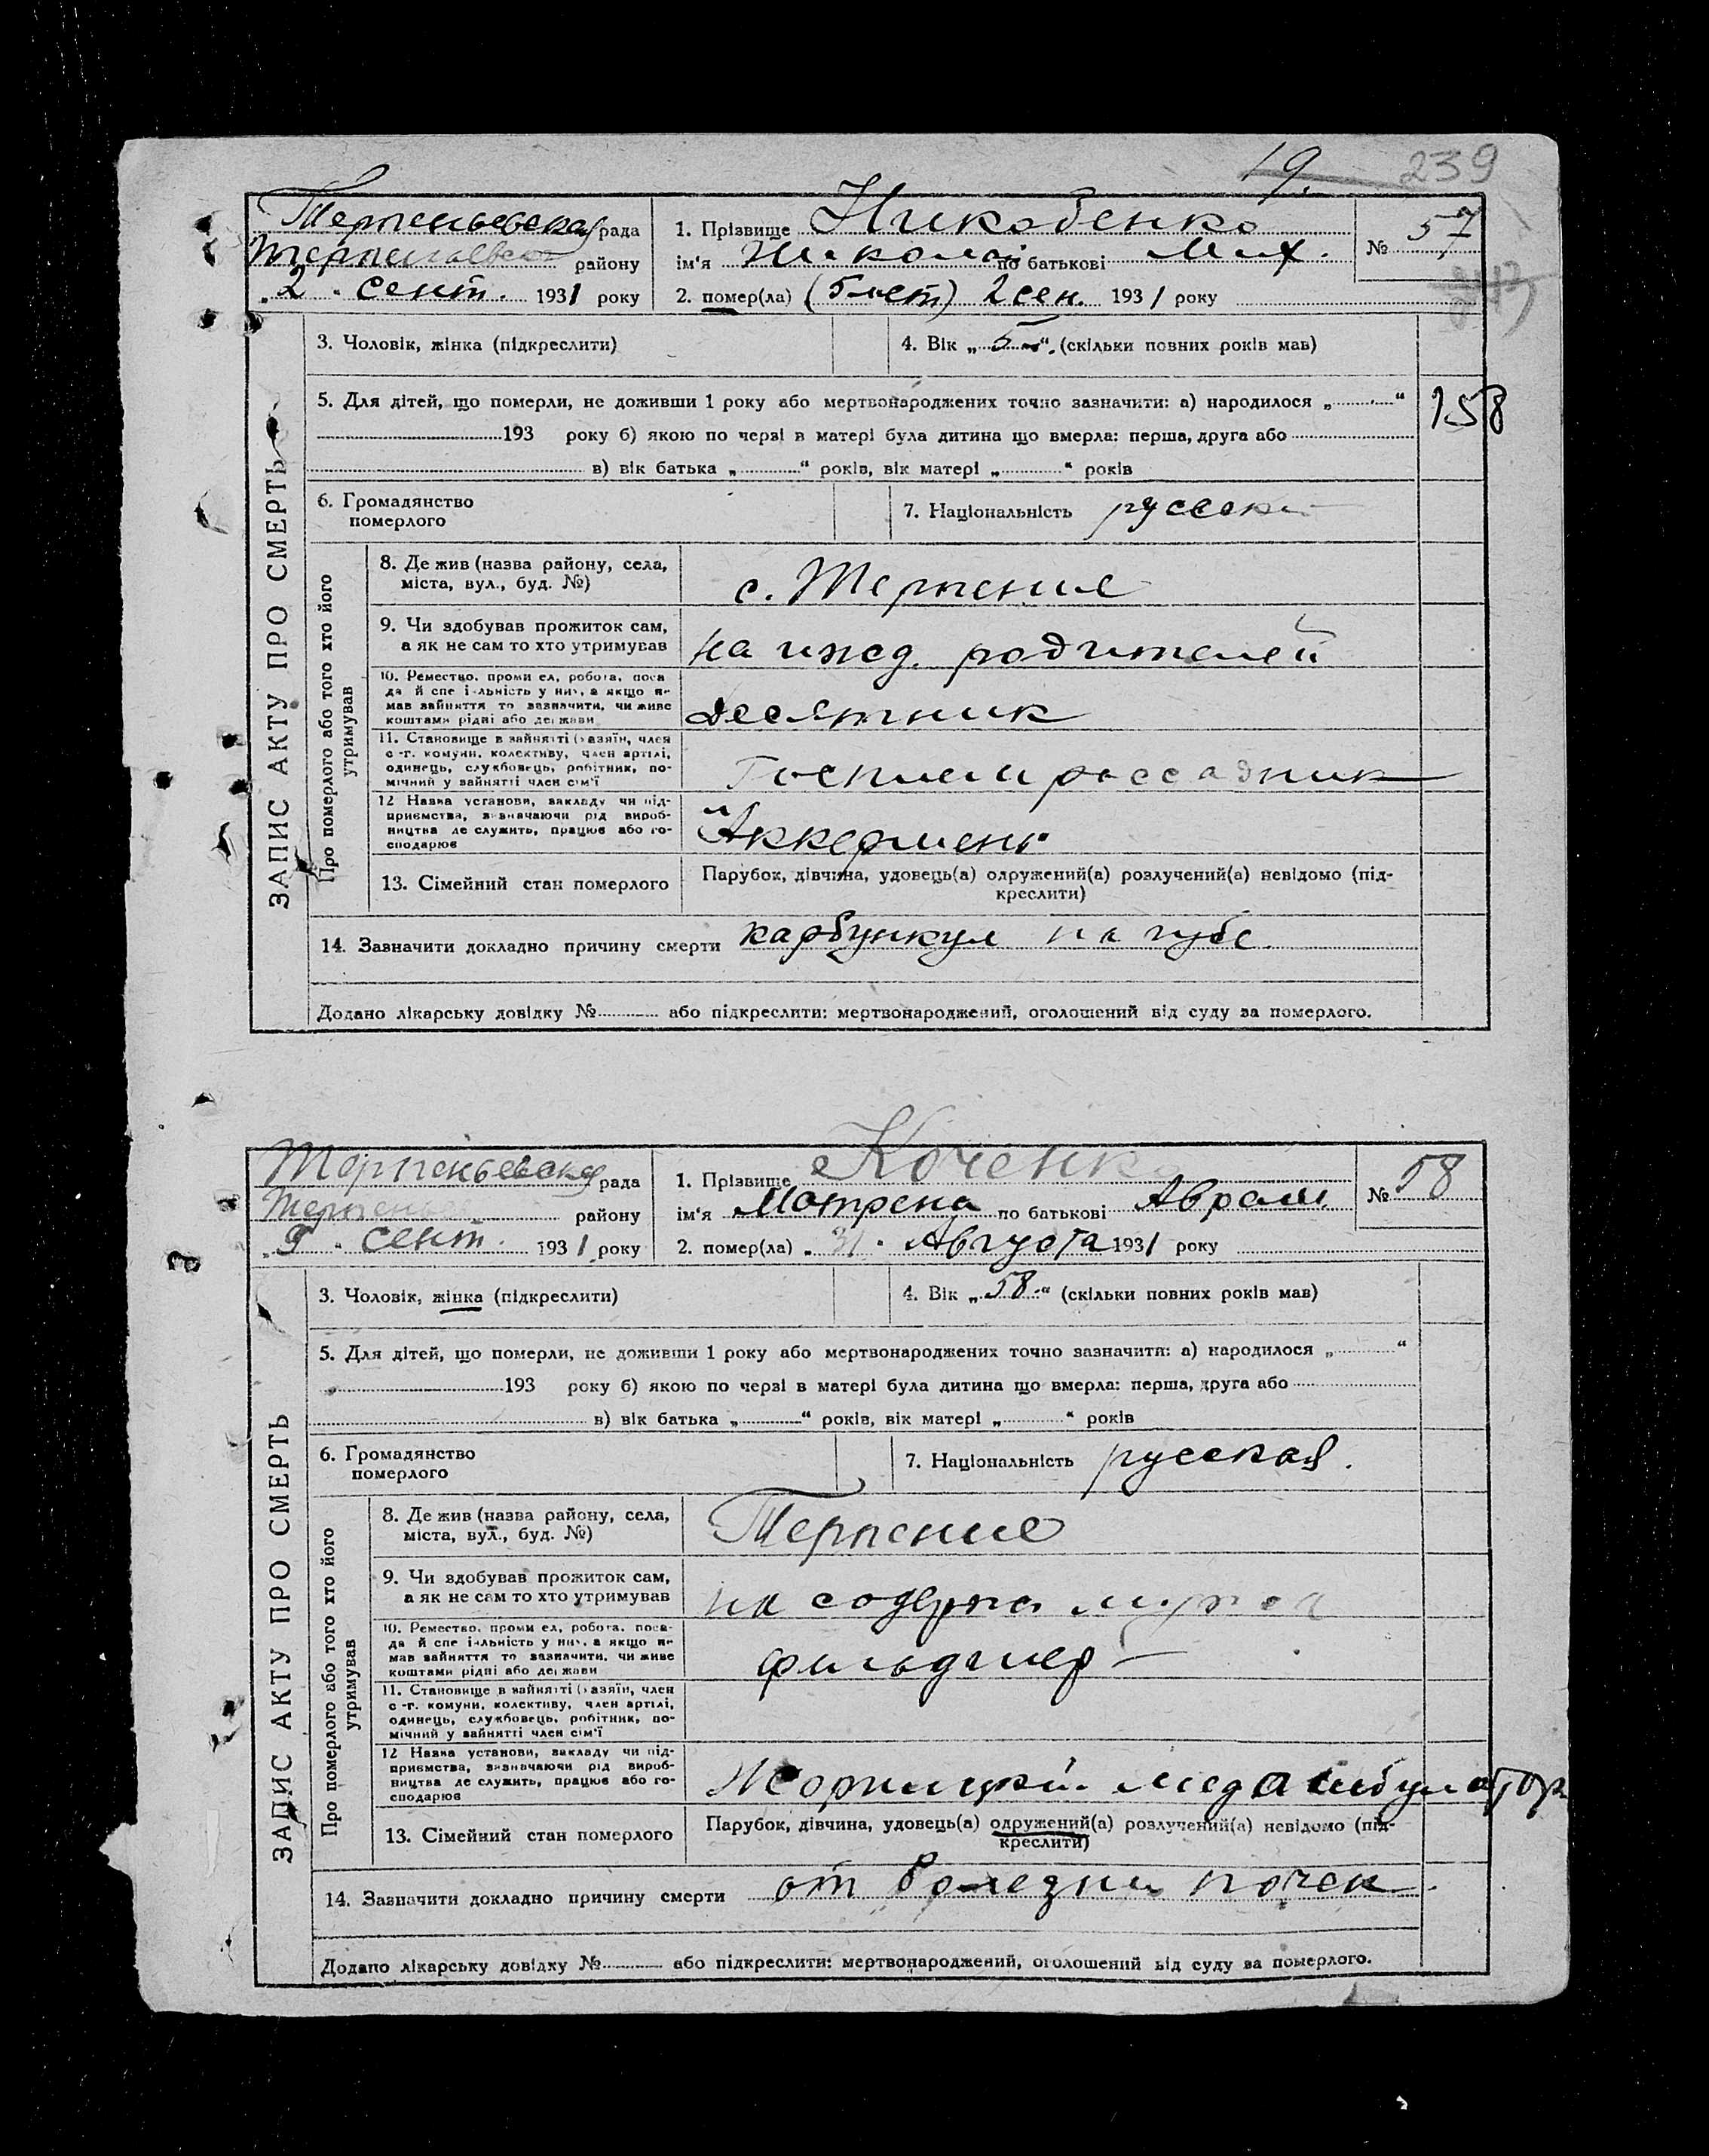 19. 239
Терпеньевская рада
1. Прізвище Никобенко
№ 57
району
ім'я Николай по батькові Мих.
„2“ сент. 1931 року
2. помер(ла) (5 лет) 2 сен. 1931 року
3. Чоловік, жінка (підкреслити)
4. Вік „5“ (скільки повних років мав)
5. Для дітей, що померли, не доживши 1 року або мертвонароджених точно зазначити: а) народилося „ “
158
193 року б) якою по черзі в матері була дитина що вмерла: перша, друга або
в) вік батька „ “ років, вік матері „ “ років
6. Громадянство
померлого
7. Національність русский
ЗАПИС АКТУ ПРО СМЕРТЬ
Про померлого або того хто його
утримував
8. Де жив (назва району, села,
міста, вул., буд. №)
с. Терпение
9. Чи здобував прожиток сам,
а як не сам то хто утримував
на ижд. родителей
10. Ремество, промисел, робота, поса
да й спеціяльність у них, а якщо не
мав зайняття то зазначити, чи живе
коштами рідні або держави
десятник
11. Становище в зайнятті (хазяїн, член
с.-г. комуни, колективу, член артілі,
одинець, службовець, робітник, по-
мічний у зайнятті член сім'ї
Госплемрассадник
12 Назва установи, закладу чи під-
приємства, зазначаючи рід вироб-
ництва де служить, працює або го-
сподарює
"Аккермень"
13. Сімейний стан померлого
Парубок, дівчина, удовець(а) одружений(а) розлучений(а) невідомо (під-
креслити)
14. Зазначити докладно причину смерти карбункул на губе
Додано лікарську довідку № або підкреслити: мертвонароджений, оголошений від суду за померлого.
Терпеньевская рада
1. Прізвище Коченко
№ 58
району
ім'я Мотрена по батькові Аврам.
сент. 1931 року
2. помер(ла) „31“ Августа 1931 року
3. Чоловік, жінка (підкреслити)
4. Вік „58“ (скільки повних років мав)
5. Для дітей, що померли, не доживши 1 року або мертвонароджених точно зазначити: а) народилося „ “
193 року б) якою по черзі в матері була дитина що вмерла: перша, друга або
в) вік батька „ “ років, вік матері „ “ років
6. Громадянство
померлого
7. Національність русская.
ЗАПИС АКТУ ПРО СМЕРТЬ
Про померлого або того хто його
утримував
8. Де жив (назва району, села,
міста, вул., буд. №)
Терпение
9. Чи здобував прожиток сам,
а як не сам то хто утримував
на содержа мужа
10. Ремество, промисел, робота, поса-
да й спеціяльність у них, а якщо не
мав зайняття то зазначити, чи живе
коштами рідні або держави
фильдшер
11. Становище в зайнятті (хазяїн, член
с.-г. комуни, колективу, член артілі,
одинець, службовець, робітник, по-
мічний у зайнятті член сім'ї
12 Назва установи, закладу чи під-
приємства, зазначаючи рід вироб-
ництва де служить, працює або го-
сподарює
медамбулатор
13. Сімейний стан померлого
Парубок, дівчина, удовець(а) одружений(а) розлучений(а) невідомо (під-
креслити)
14. Зазначити докладно причину смерти от болезни почек.
Додано лікарську довідку № або підкреслити: мертвонароджений, оголошений від суду за померлого.